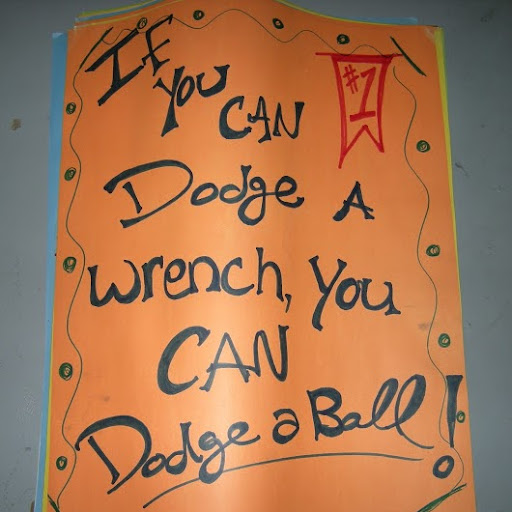 If
You
CAN
#1
Dodge A
wrench, You
CAN
Dodge a Ball!